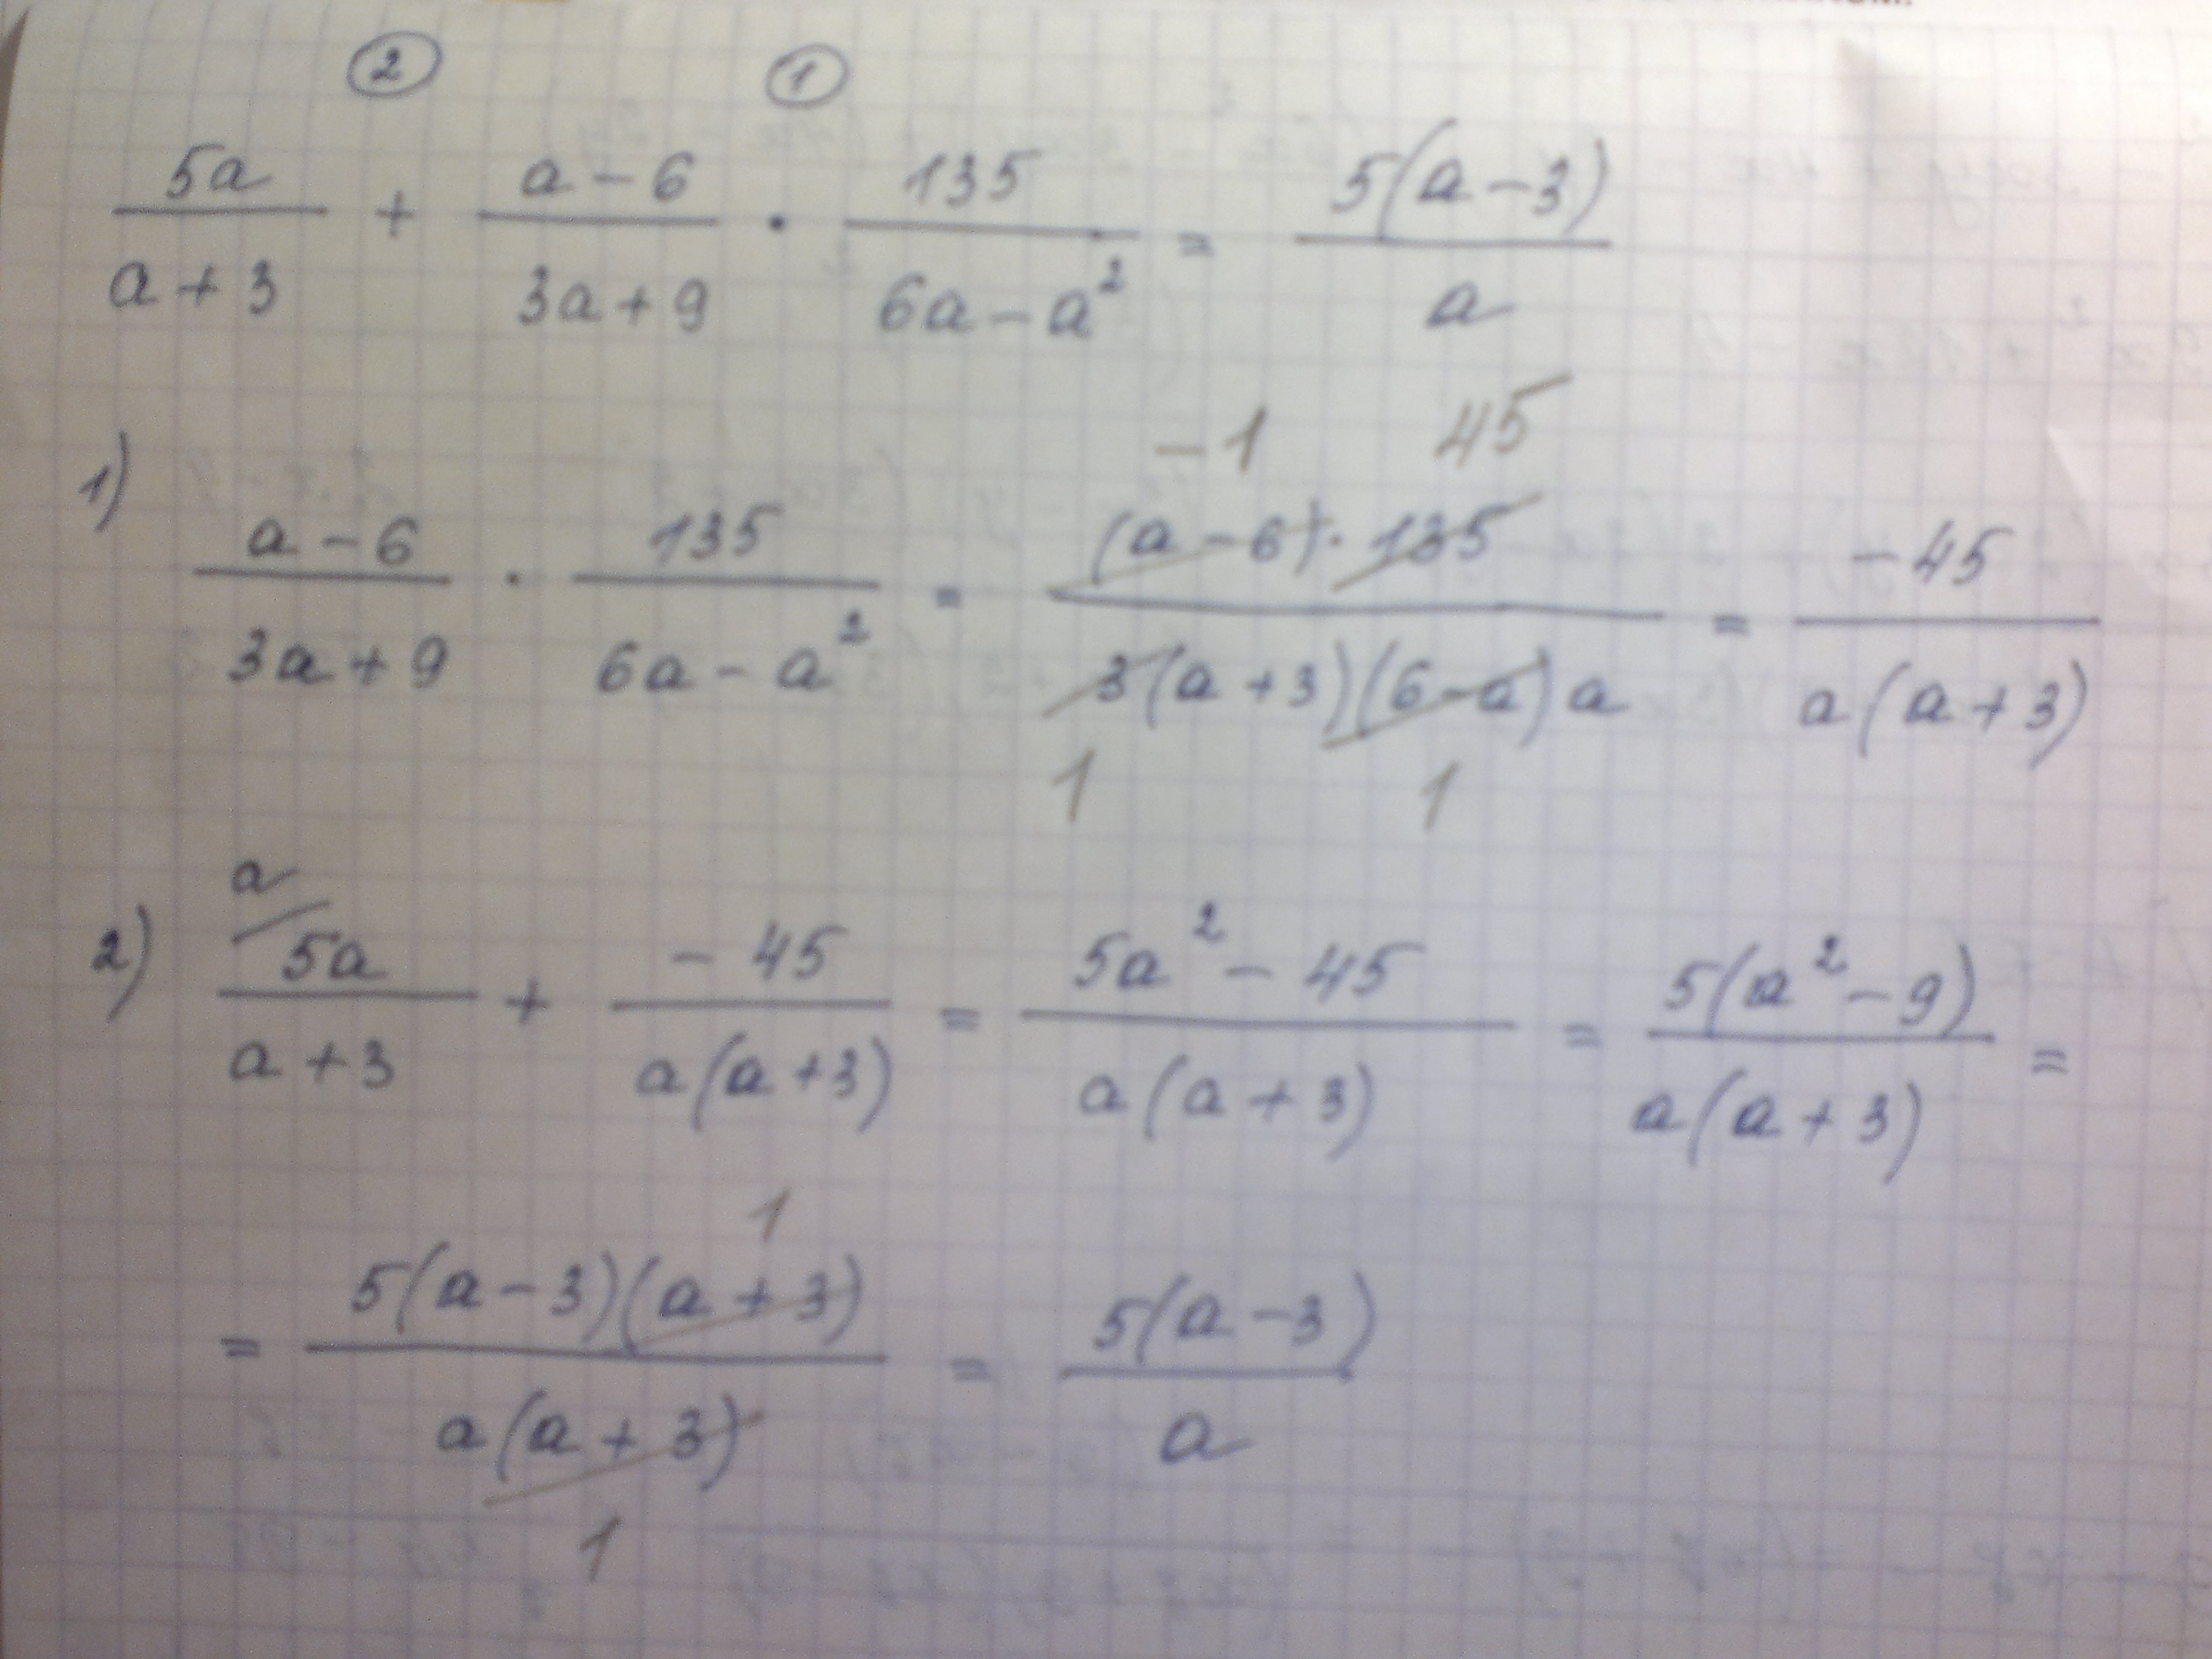 ② ①
5a/(a+3) + (a-6)/(3a+9) · 135/(6a-a²) = 5(a-3)/a
-1 45
1) (a-6)/(3a+9) · 135/(6a-a²) = (a-6)·135/3(a+3)(6-a)a = -45/a(a+3)
1 1
a
2) 5a/(a+3) + -45/a(a+3) = (5a²-45)/a(a+3) = 5(a²-9)/a(a+3) =
1
= 5(a-3)(a+3)/a(a+3) = 5(a-3)/a
1